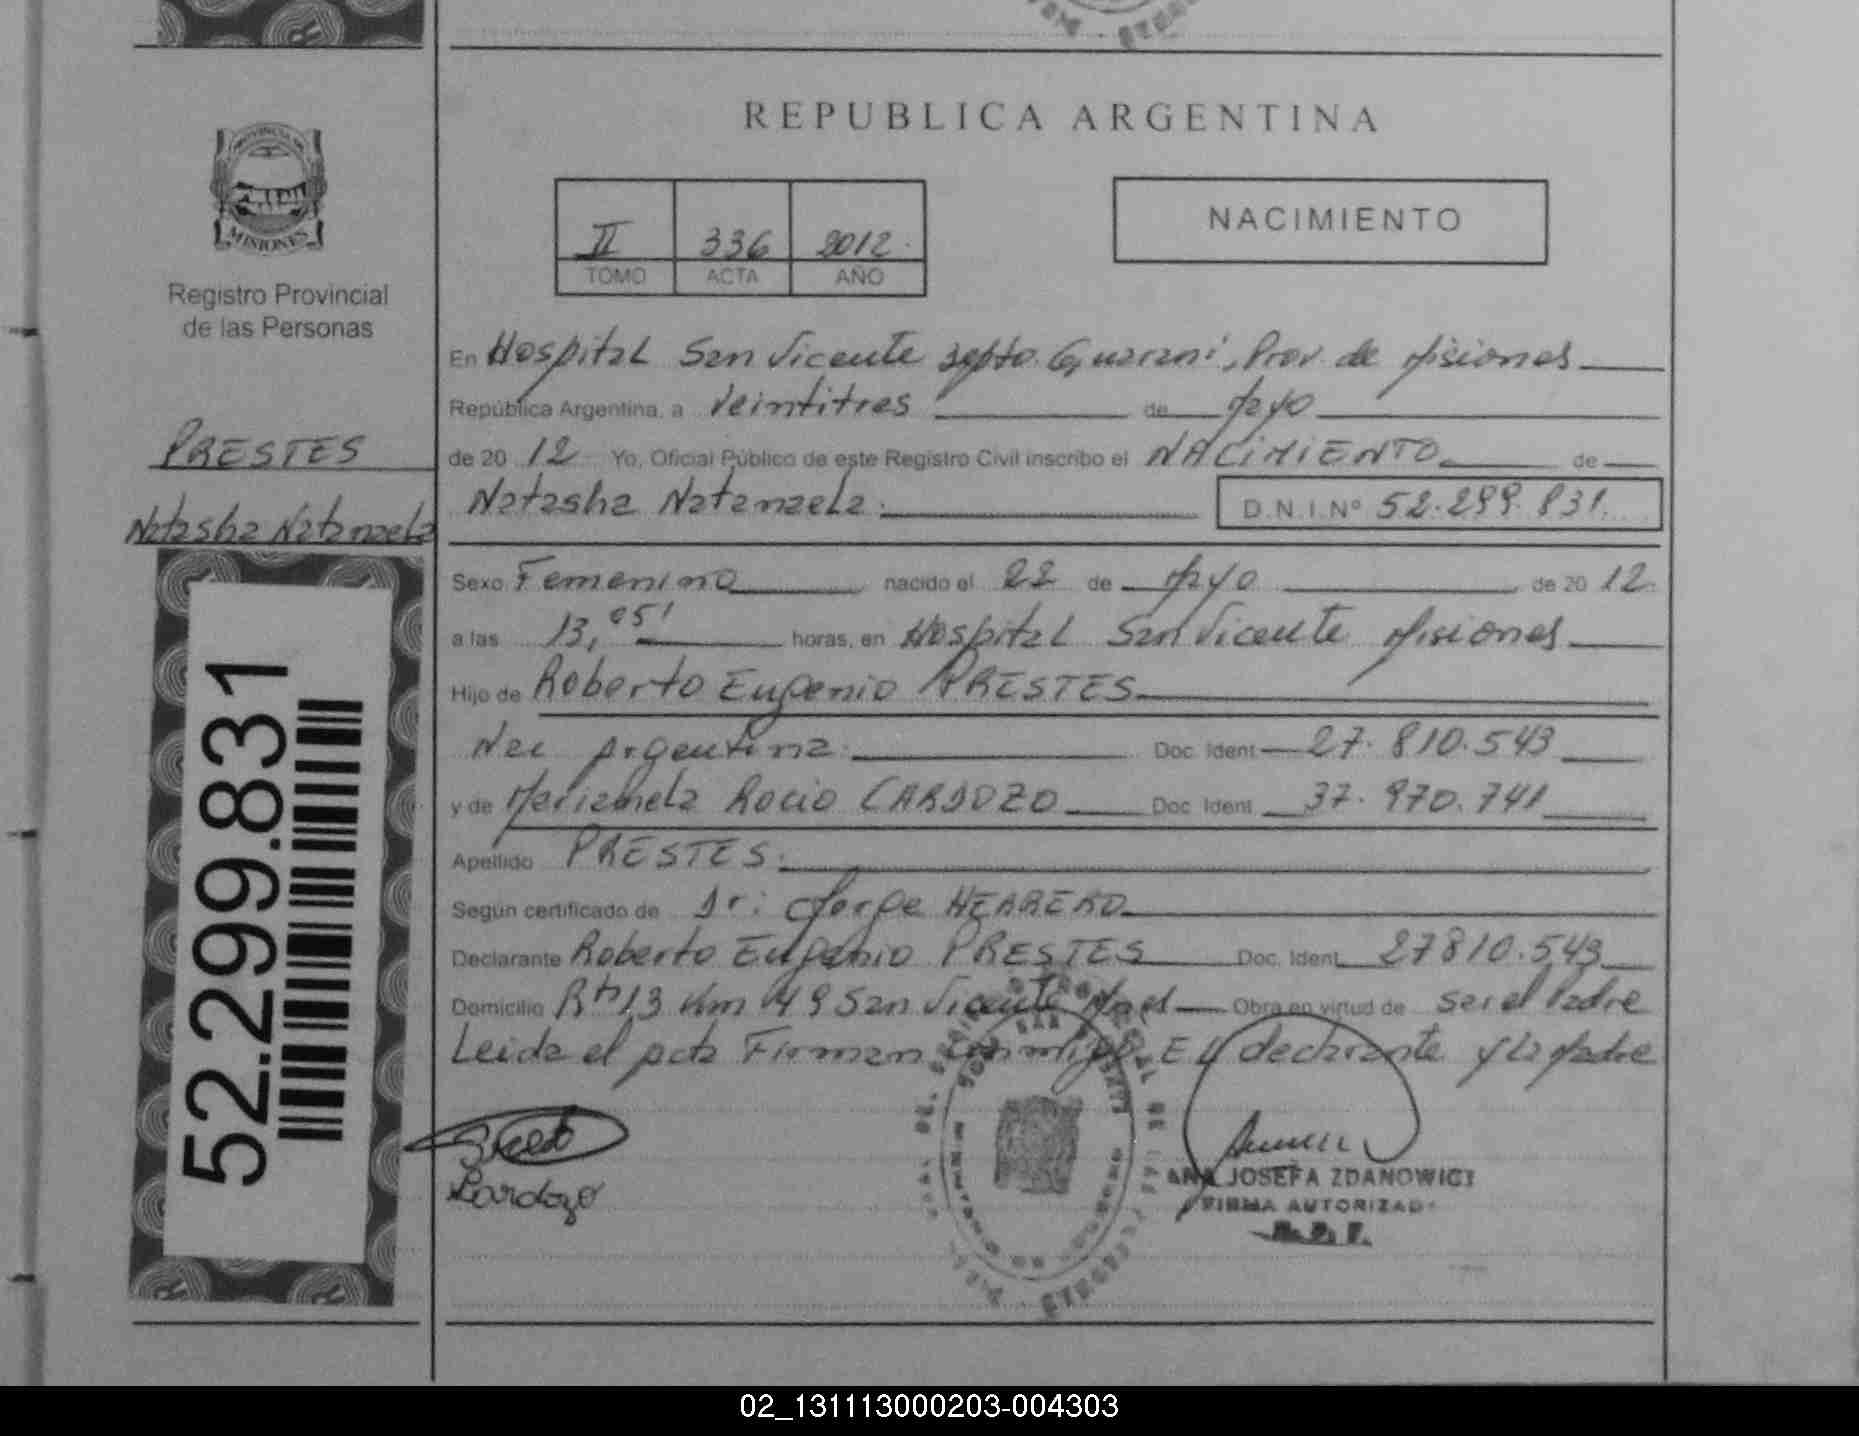 REPUBLICA ARGENTINA
PROVINCIA DE
MISIONES
Registro Provincial
de las Personas
II 336 2012.
TOMO ACTA AÑO
NACIMIENTO
En Hospital San Vicente Depto. Guarani, Prov. de Misiones
República Argentina, a Veintitres de Mayo
de 20 12 Yo, Oficial Público de este Registro Civil inscribo el NACIMIENTO de
Natasha Natanaela. D.N.I.Nº 52.299.831.
PRESTES
Natasha Natanaela
52.299.831
Sexo Femenino nacido el 22 de Mayo de 20 12.
a las 13,05' horas, en Hospital San Vicente Misiones
Hijo de Roberto Eugenio PRESTES
Nac Argentina. Doc. Ident 27.810.543
y de Marianela Rocio CARDOZO Doc. Ident 37.970.741
Apellido PRESTES.
Según certificado de Dr: Jorge HERRERO
Declarante Roberto Eugenio PRESTES Doc. Ident 27810.543
Domicilio Rta 13 Km 49 San Vicente Mnes Obra en virtud de ser el Padre
Leida el acta Firman conmigo El declarante y la Madre
Cardozo
ANA JOSEFA ZDANOWICZ
FIRMA AUTORIZADA
02_131113000203-004303